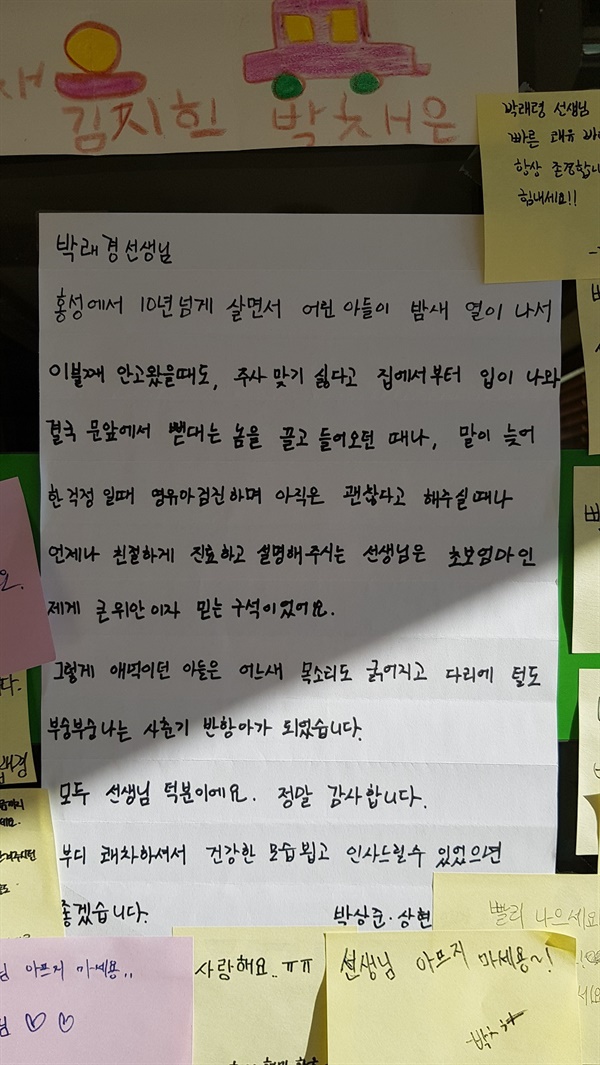 재
김지힌 박채은
박래경 선생님
빠른 쾌유
항상 존경합니
힘내세요!!
박래경선생님
홍성에서 10년넘게 살면서 어린 아들이 밤새 열이 나서
이불째 안고왔을때도, 주사 맞기 싫다고 집에서부터 입이 나와
결국 문앞에서 뻗대는 놈을 끌고 들어오던 때나, 말이 늦어
한걱정 일때 영유아검진하며 아직은 괜찮다고 해주실때나
언제나 친절하게 진료하고 설명해주시는 선생님은 초보엄마인
제게 큰위안이자 믿는구석이었어요.
그렇게 애먹이던 아들은 어느새 목소리도 굵어지고 다리에 털도
부숭부숭나는 사춘기 반항아가 되었습니다.
모두 선생님 덕분이에요. 정말 감사합니다.
부디 쾌차하셔서 건강한 모습뵙고 인사드릴수 있었으면
좋겠습니다. 박상준·상현
빨리 나으세요
님 아프지 마세용..
님 ♡ ♡
사랑해요..ㅠㅠ
선생님 아프지 마세용~!